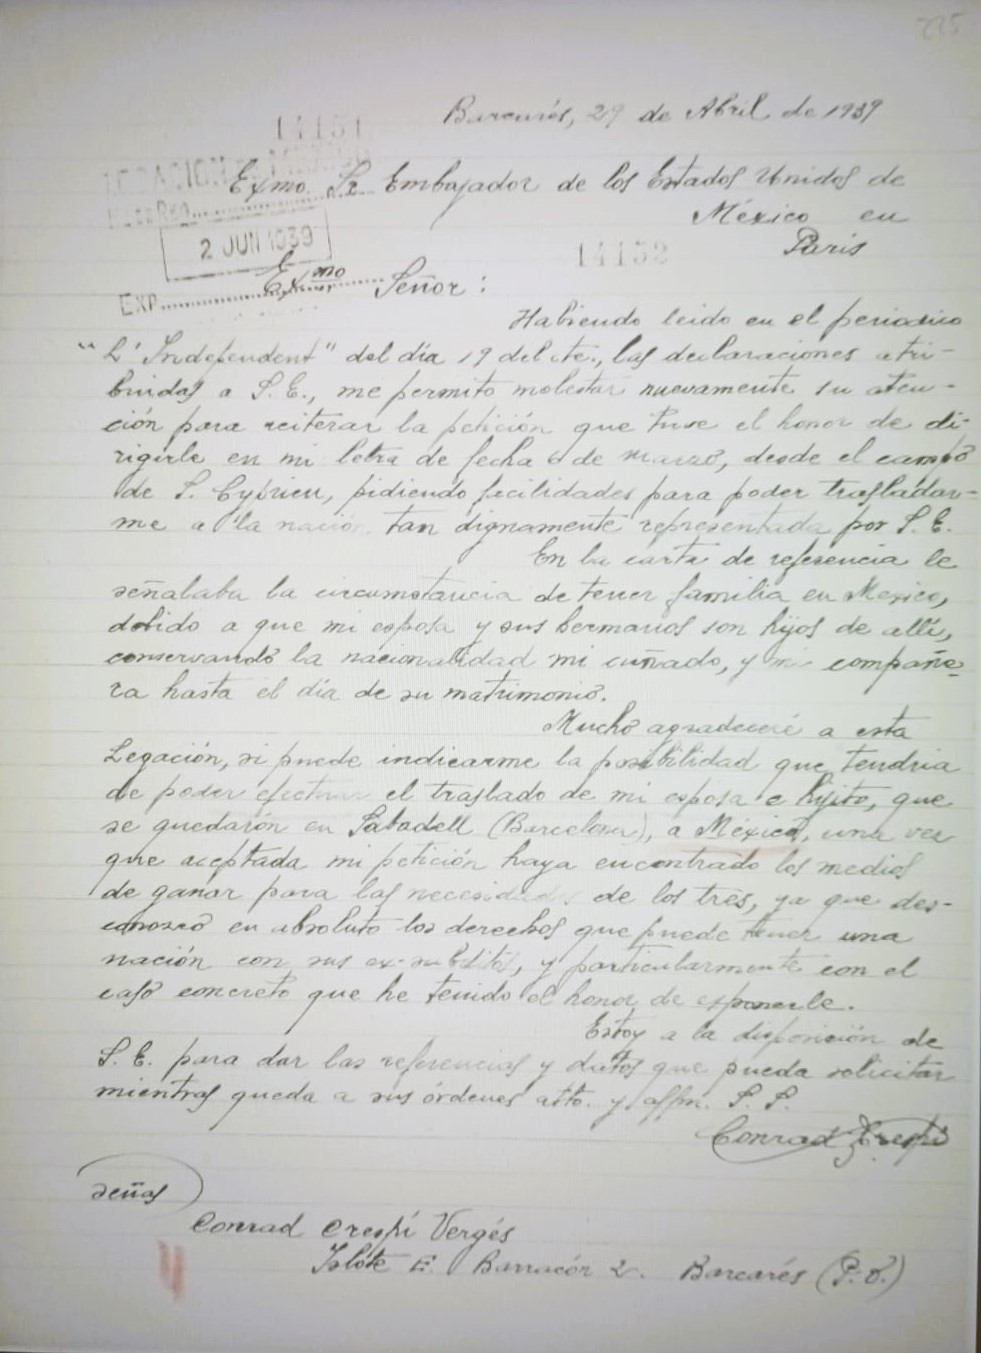 295
Barcarés, 29 de Abril de 1939
14151
LEGACION DE MEXICO
Exmo. Sr. Embajador de los Estados Unidos de
México en
2 JUN 1939
14152
París
Exmo Señor:
EXP.
Habiendo leido en el periodico
"L'Independent" del día 19 del cte., las declaraciones atri-
buidas a S. E., me permito molestar nuevamente su aten-
ción para reiterar la petición que tuve el honor de di-
rigirle en mi letra de fecha 6 de marzo, desde el campo
de S. Cyprien, pidiendo facilidades para poder trasladar-
me a la nación tan dignamente representada por S. E.
En la carta de referencia le
señalaba la circumstancia de tener familia en Mexico,
debido a que mi esposa y sus hermanos son hijos de allí,
conservando la nacionalidad mi cuñado, y mi compañe-
ra hasta el día de su matrimonio.
Mucho agradeceré a esta
Legación, si puede indicarme la posibilidad que tendria
de poder efectuar el traslado de mi esposa e hijito, que
se quedarón en Sabadell (Barcelona), a México, una vez
que aceptada mi petición haya encontrado los medios
de ganar para las necesidades de los tres, ya que des-
conozco en absoluto los derechos que puede tener una
nación con sus ex-subditos, y particularmente con el
caso concreto que he tenido el honor de exponerle.
Estoy a la disposición de
S. E. para dar las referencias y datos que pueda solicitar
mientras queda a sus órdenes atto. y affm. S. S.
Conrad Crespí
señas
Conrad Crespí Vergés
Islóte E. Barracón 2. Barcarés (P. O.)